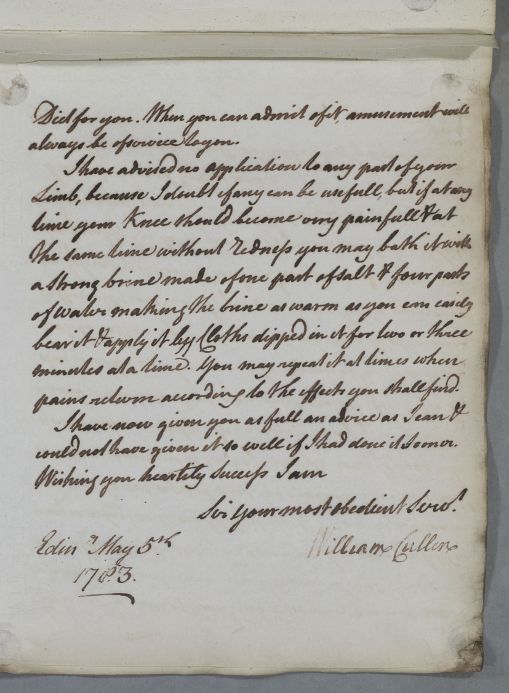 Diet for you. When you can admit of it, amusement will
always be of service to you.
I have advised no application to any part of your
Limb, because I doubt if any can be usefull, but if at any
time your Knee should become very painfull & at
the same time without Redness you may bath it with
a strong brine made of one part of salt & four parts
of water making the brine as warm as you can easily
bear it & apply it by Cloths dipped in it for two or three
minutes at a time. You may repeat it at times when
pains return according to the effects you shall find.
I have now given you as full an advice as I can &
could not have given it so well if I had done it Sooner.
Wishing you heartily Success I am
Sir Your most obedient Servt.
Edinr. May 5th
William Cullen
1783.